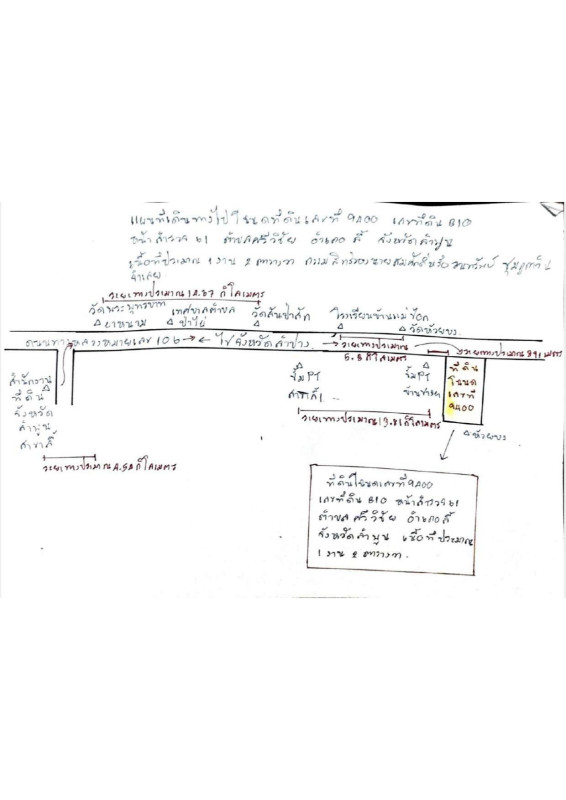 แผนที่เดินทางไปโฉนดที่ดินเลขที่ 9400 เลขที่ดิน 310
หน้าสำรวจ ตำบลศรีวิชัย อำเภอลี้ จังหวัดลำพูน
เนื้อที่ประมาณ 1 งาน 2 ตารางวา กรรมสิทธิ์ของนายสมศักดิ์หรือ
จำเลย
ระยะทางประมาณ กิโลเมตร
วัดพระพุทธบาท เทศบาลตำบล วัดสันป่าสัก โรงเรียนบ้านแม่
ป่าไผ่ วัดห้วยบง
ถนนทางหลวงหมายเลข 106 ไปจังหวัดลำปาง ระยะทางประมาณ ระยะทางประมาณ 391 เมตร
5.8 กิโลเมตร
สำนักงาน
ที่ดิน
จังหวัด
ลำพูน
สาขาลี้
ปั๊มPT
สาขาลี้1
ปั๊มPT
ที่ดิน
โฉนด
เลขที่
9400
ระยะทางประมาณ กิโลเมตร
ห้วยบง
ระยะทางประมาณ 4.54 กิโลเมตร
ที่ดินโฉนดเลขที่ 9400
เลขที่ดิน 310 หน้าสำรวจ
ตำบลศรีวิชัย อำเภอลี้
จังหวัดลำพูน เนื้อที่ประมาณ
1 งาน 2 ตารางวา